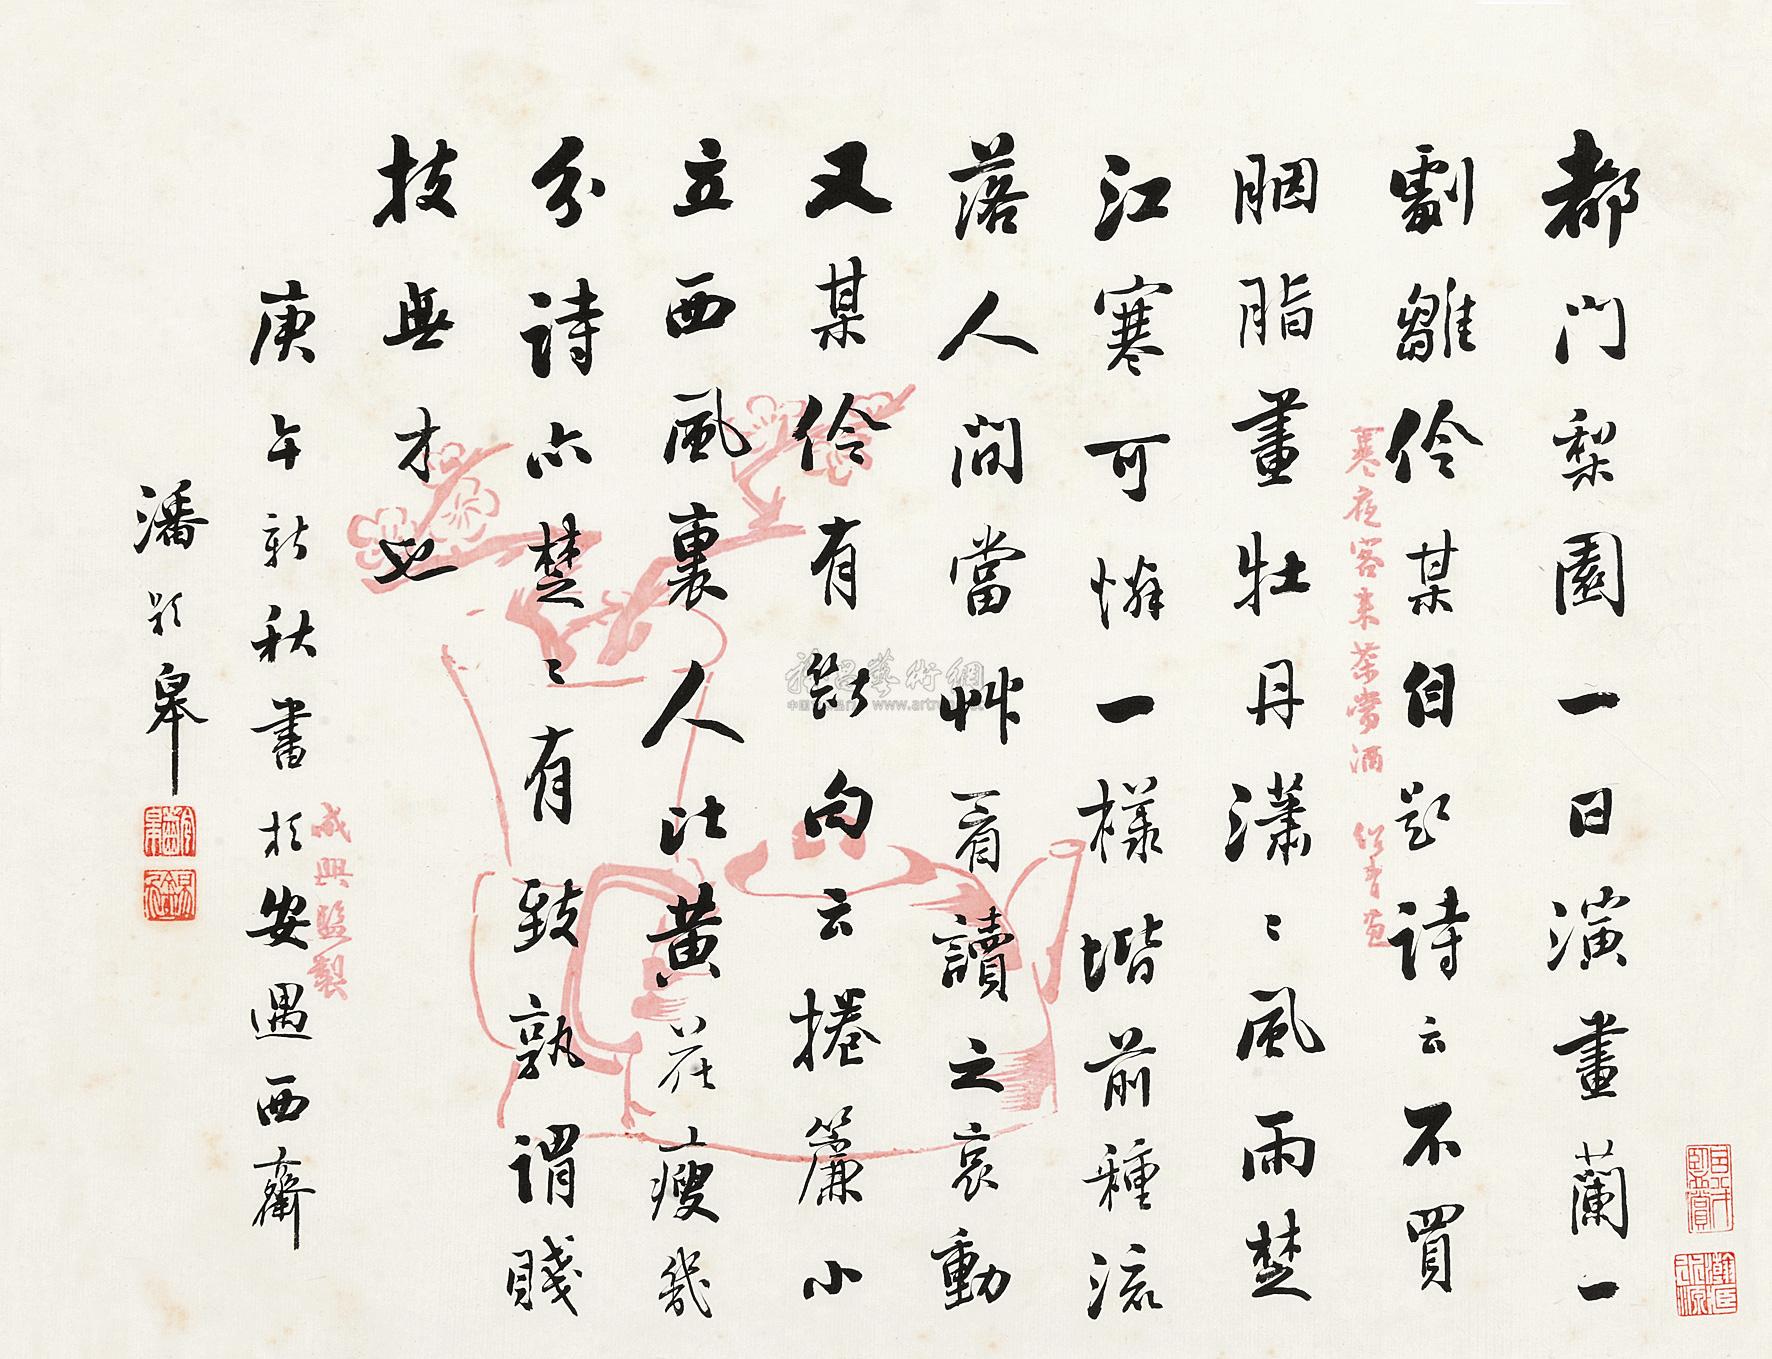 都門梨園一日演畫蘭一
劇雛伶某自題詩云不買
胭脂畫牡丹瀟〻風雨楚
江寒可憐一樣堦前種流
落人間當艸看讀之哀動
又某伶有斷句云捲簾小
立西風裏人比黃花瘦幾
分詩亦楚〻有致孰謂賤
技無才也
庚午新秋書於安遇西齋
潘齡皋
寒夜客來茶當酒
成興監製
雅昌藝術網